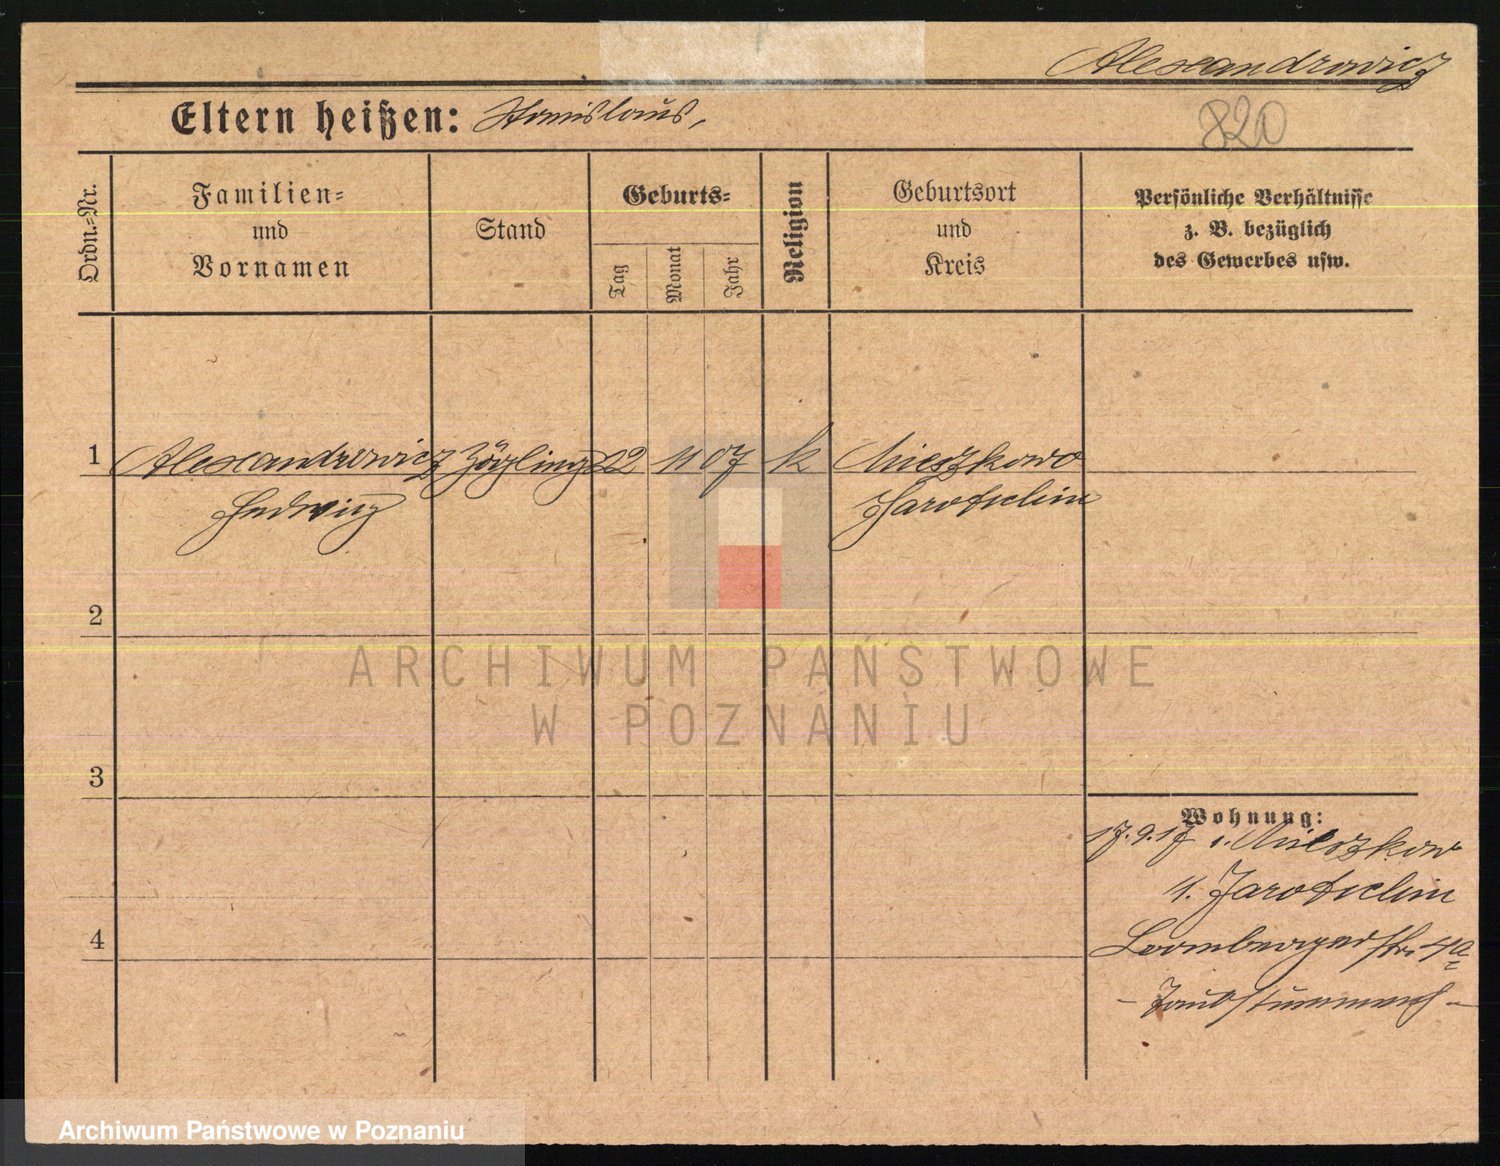 Alexandrowicz
Eltern heißen: Stanislaus,
820
Ordn.=Nr.
Familien=
und
Vornamen
Stand
Geburts=
Tag
Monat
Jahr
Religion
Geburtsort
und
Kreis
Persönliche Verhältnisse
z. B. bezüglich
des Gewerbes usw.
1 Alexandrowicz Zögling 22 11 07 k Mieszkowo
Hedwig Jarotschin
2
ARCHIWUM PAŃSTWOWE
W POZNANIU
3
Wohnung:
17.9.17 Mieszkow
Jarotschin
4
Brombergerstr. 4a
Archiwum Państwowe w Poznaniu